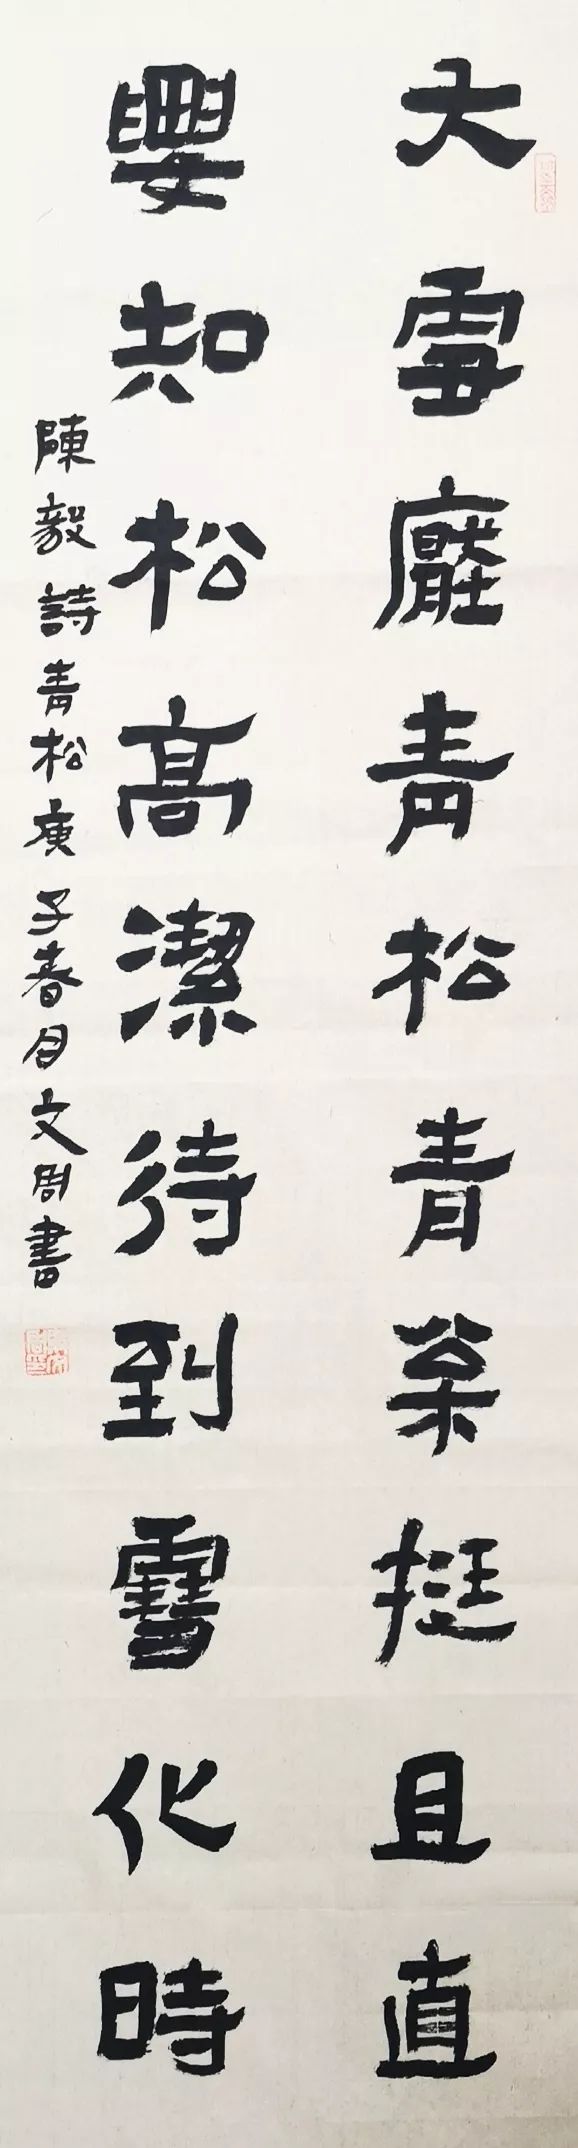 大雪壓青松青枀挺且直
要知松高潔待到雪化時
陳毅詩青松庚子春月文周書